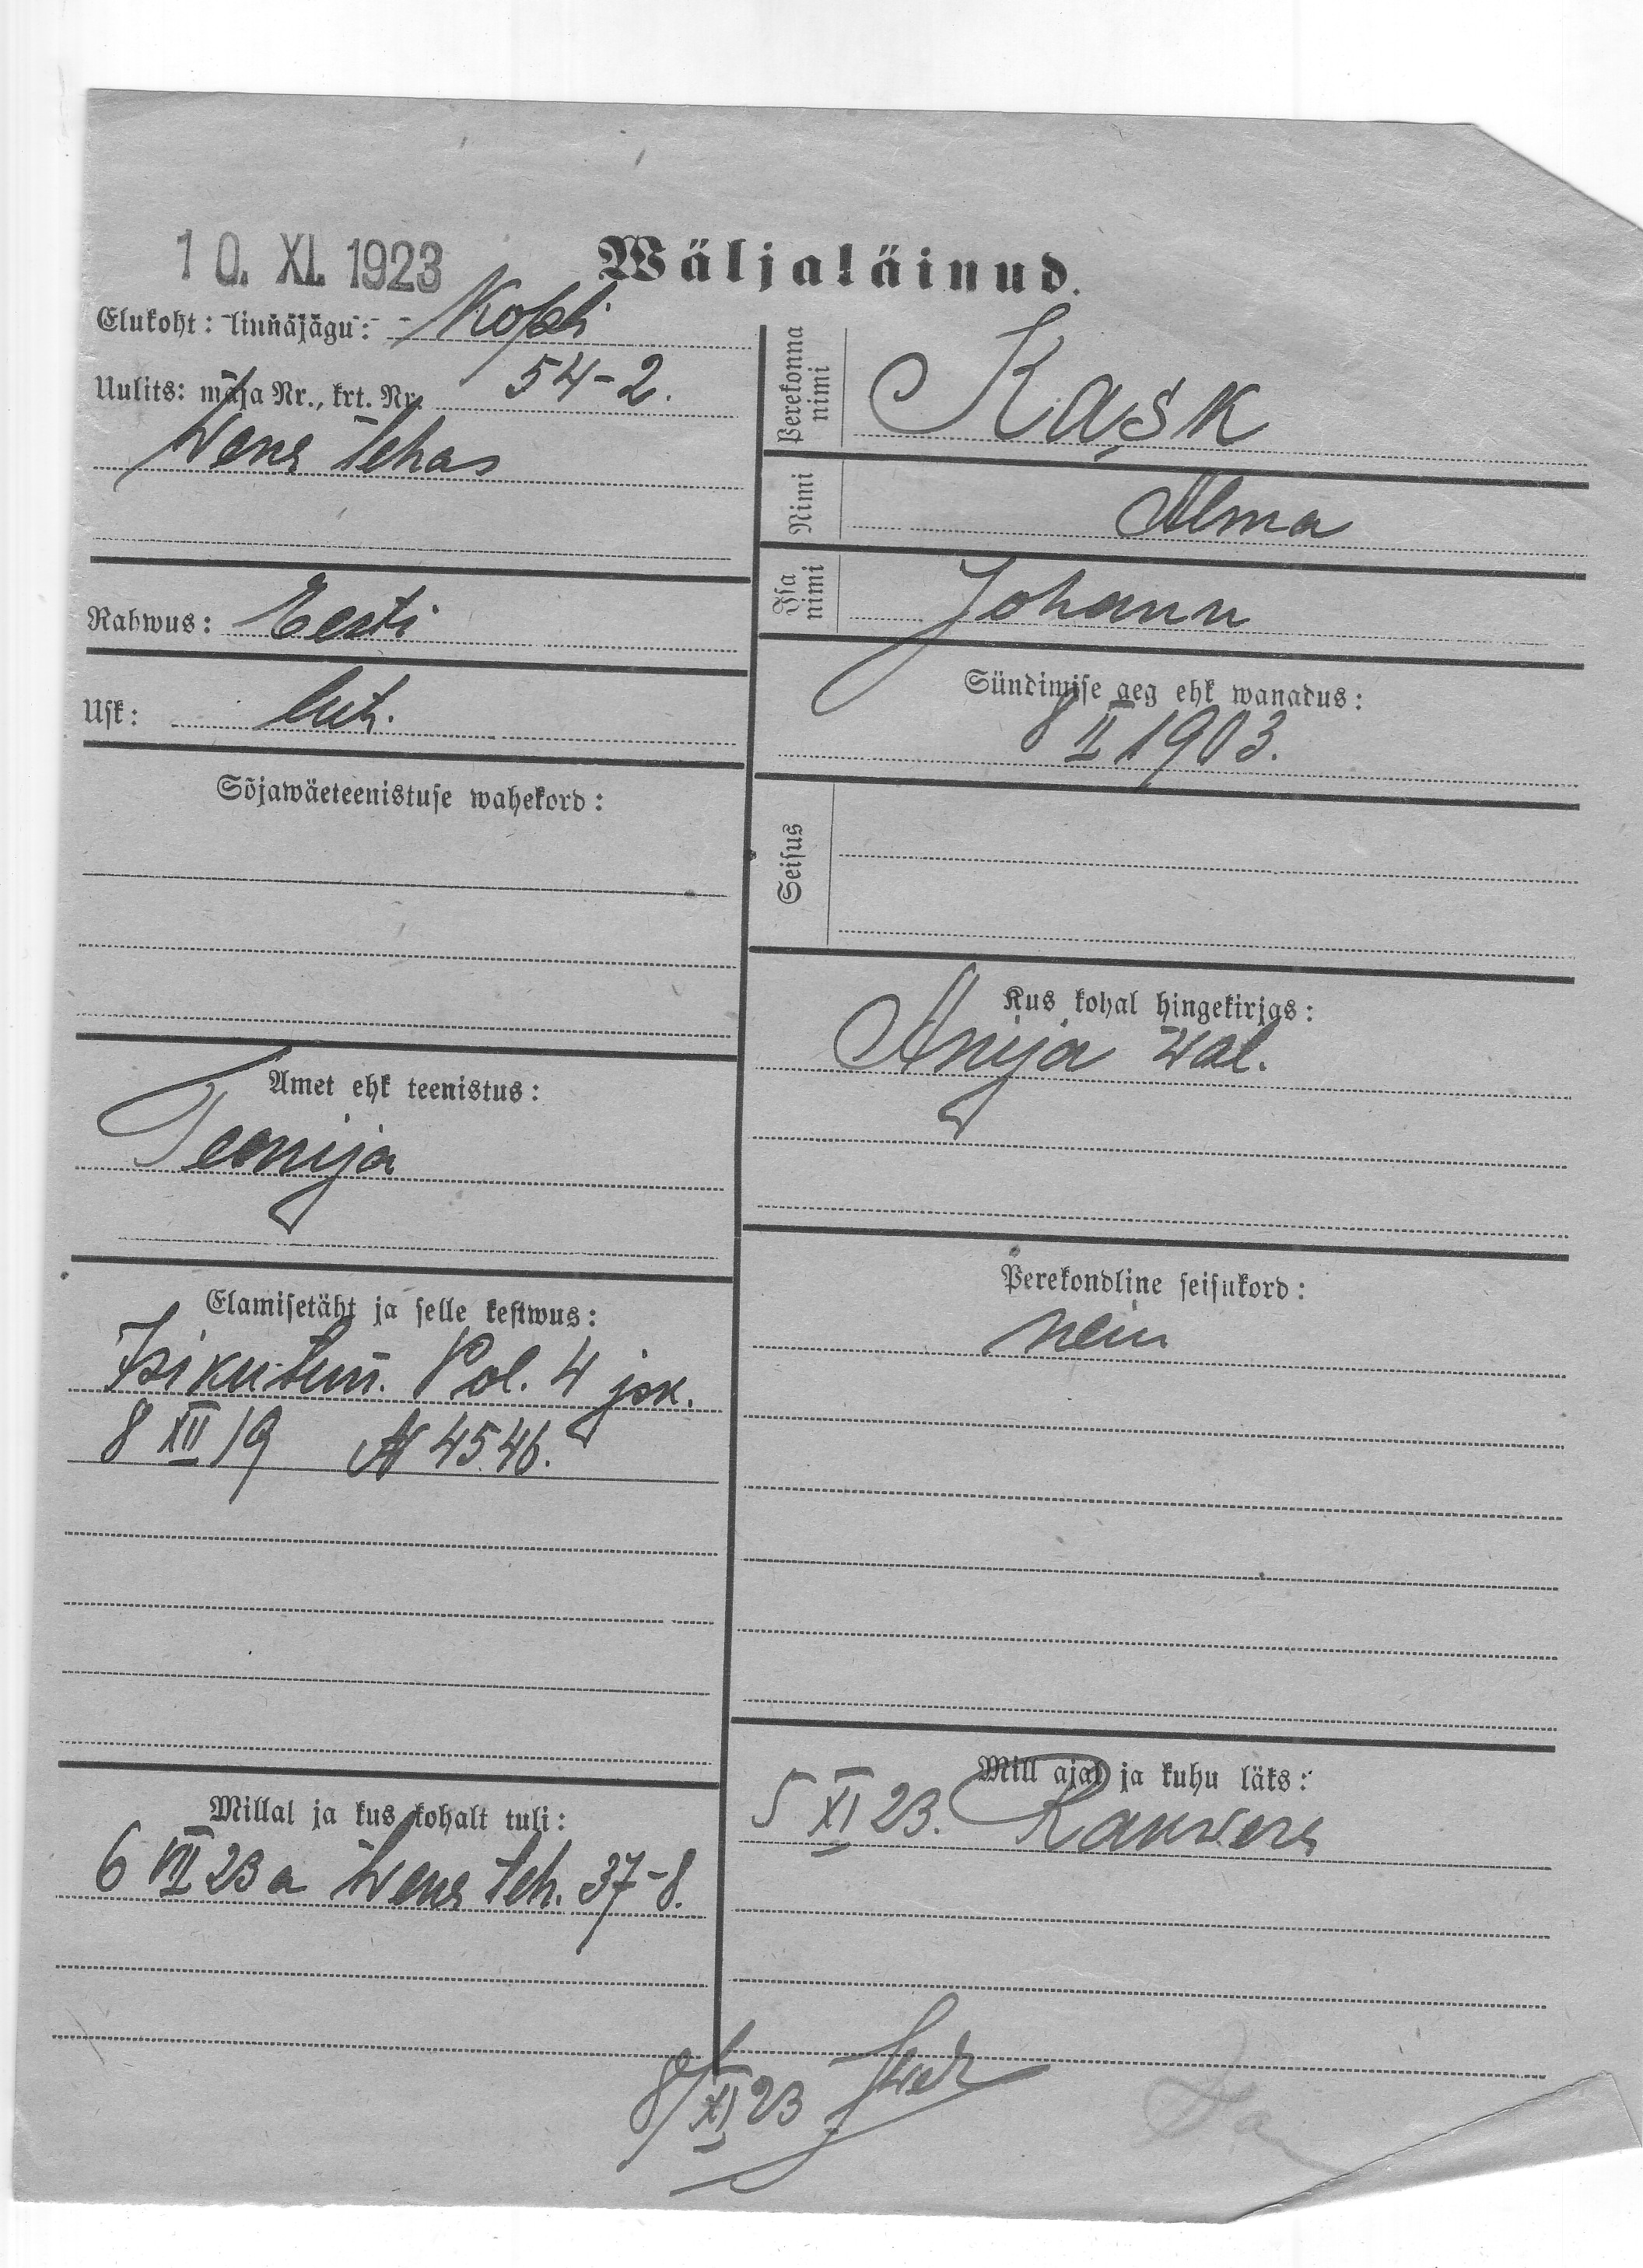 10. XI. 1923
Wäljaläinud.
Elukoht: linnajägu: Kopli
Uulits: maja Nr., krt. Nr. 54-2.
Wene tehas
Rahwus: Eesti
Usk: luth.
Sõjawäeteenistuse wahekord:
Amet ehk teenistus:
Teenija
Elamisetäht ja selle kestwus:
Isikutun. Pol. 4 jsk.
8 XII 19 N 4546.
Millal ja kus kohalt tuli:
6 VII 23 a Wene teh. 37-8.
Perekonna nimi Kask
Nimi Alma
Isa nimi Johann
Sündimise aeg ehk wanadus:
8 II 1903.
Seisus
Kus kohal hingekirjas:
Anija wal.
Perekondline seisukord:
nein
Mill ajal ja kuhu läks:
5 XI 23. Rakwere
8/XI 23